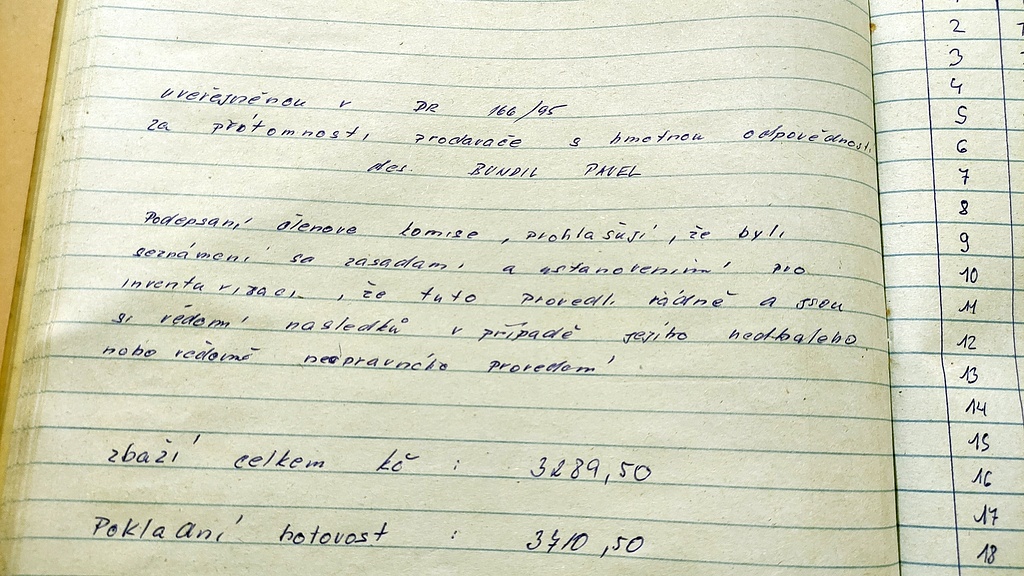 uveřejněnou v DR 166/95
za přítomnosti prodavače s hmotnou odpovědností
des. BUNDIL PAVEL
Podepsaní členove komise, prohlašují, že byli
seznámeni sa zasadami a ustanoveními pro
inventarizaci, že tuto provedli řádně a jsou
si vědomi nasledků v případě jejího nedbaleho
nobo vědomě neopravného provedení
zbaží celkem kč : 3289,50
Pokladní hotovost : 3710,50
2
3
4
5
6
7
8
9
10
11
12
13
14
15
16
17
18